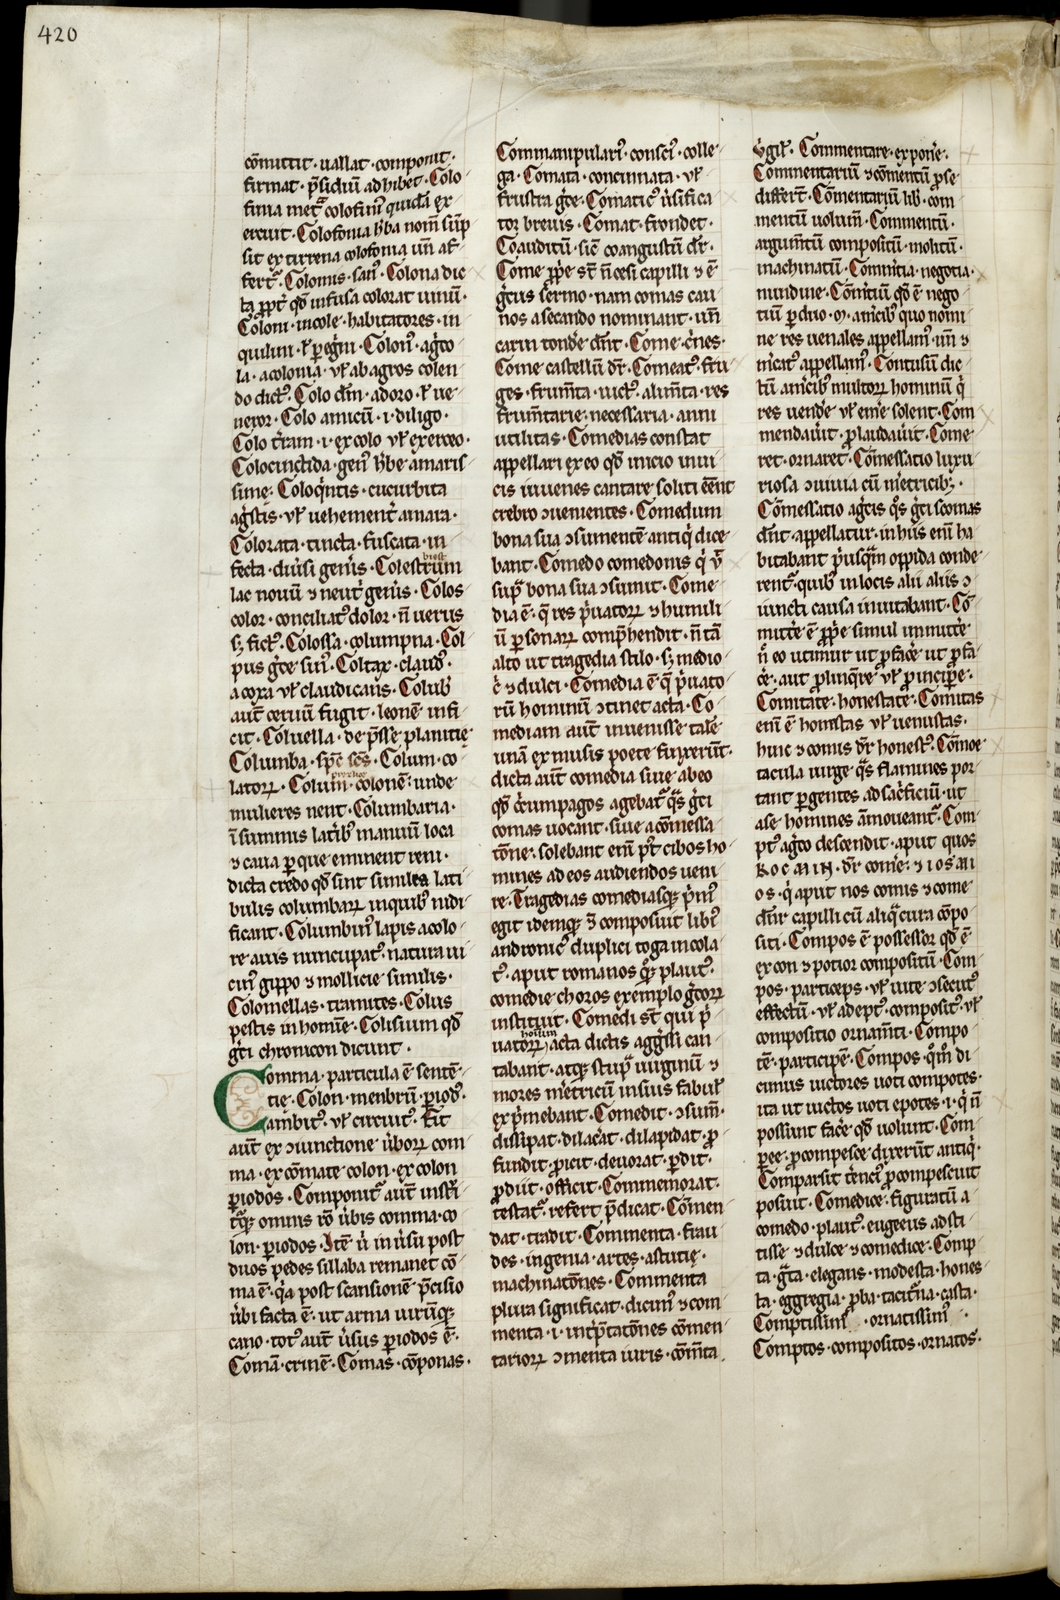 420
cōmittit · uallat · componit ·
firmat · p̄sidiū adhibet · Colo
fima met᷑ colofim᷒ quidā ex
ercuit · Colofonia h̓ba nom̄ sūp
sit ex tirrena colofonia uñ af
fert᷑ · Colomis · san᷒ · Colona dic
ta ꝓpt̓ qd̄ infusa colorat uinū ·
Coloni · incole · habitatores · in
quilini · ł ꝑeg̓ni · Colon᷒ · ag̓co
la · a colonia · uł ab agros colen
do dict᷒ · Colo dm̄ · adoro · ł ue
neror · Colo amicū · i · diligo ·
Colo t̓ram · i · excolo uł exerceo ·
Colocinctida · gen᷒ h̓be amaris
sime · Coloq̓ntis · cucurbita
ag̓stis · uł uehement̓ amara ·
Colorata · tincta · fuscata · in
fecta · diu̓si gen̓is · Colestrum
biest
lac nouū ⁊ neut̓ gen̓is · Colos
color · conciliat᷒ dolor · n̄ uerus
ſꝫ fict᷒ · Colossa · columpna · Col
pus g̓ce sin᷒ · Coltax · claud᷒ ·
a coxa uł claudicans · Colub̓
aut̄ ceruū fugit · leonē infi
cit · Coluella · de p̄sse planitie
Columba · sp̄c sc̄s · Colum · co
latoꝝ · Colum · colonē · unde
mulieres nent · Columbaria ·
ī summis latib᷒ manuū loca
⁊ caua ꝑ que eminent remi ·
dicta credo qd̄ sint similea lati
bulis columbaꝝ in quib᷒ nidi
ficant · Columbin᷒ lapis a colo
re auis nuncupat᷒ · natura ui
cin᷒ gippo ⁊ mollicie similis ·
Colomellas · tramites · Colus
pestis in homīe · Colisium qd̄
g̓ci chronicon dicunt ·
Comma · particula ē sentē
tię · Colon · menbrū · ꝑiod᷒ ·
ambit᷒ · uł circuit᷒ · Fit
aut̄ ex ↄiunctione u̓boꝝ com
ma · ex cōmate colon · ex colon
ꝑiodos · Componit᷑ aut̄ inst̓
t᷑q; omnis rō u̓bis comma · co
lon · ꝑiodos · Itē u̓ in u̓su post
duos pedes sillaba remanet cō
ma ē · q̓a post scansionē p̄cisio
u̓bi facta ē · ut arma uirūq;
cano · tot᷒ aut̄ u̓sus ꝑiodos ē ·
Comā · crinē · Comas · cōponas ·
Commanipularis᷒ · consci᷒ · colle
ga · Comata · concinnata · uł
frustra g̓ce · Comatic᷒ u̓sifica
tor breuis · Comat · frondet ·
Coauditū · sic̄ coangustū dr̄ ·
Come ꝓpe st̄ n̄ cesi capilli ⁊ ē
g̓cus sermo · nam comas cau
nos a secando nominant · uñ
carin tond̓e dn̄t · Come · c̓nes ·
Come castellū dr̄ · Comeat᷒ · fru
ges · frum̄ta · uict᷒ · alim̄ta · res
frum̄tarie · necessaria · anni
utilitas · Comedias constat
appellari ex eo qd̄ inicio inui
cis iuuenes cantare soliti eēnt
crebro ↄuenientes · Comedum
bona sua ↄsumentē antiq̓ dice
bant · Comedo comedonis q̓ ū̄
sup̄ bona sua ↄsumit · Come
dia ē · q̄ res p̓uatoꝝ ⁊ humili
ū ꝑsonaꝝ comp̄hendit · n̄ tā
alto ut tragedia stilo · ſꝫ medio
c̓ ⁊ dulci · Comedia ē q̄ p̓uato
rū hominū ↄtinet acta · Co
mediam aut̄ inuenisse talē
unā ex musis poete finxerūt ·
dicta aut̄ comedia siue ab eo
qd̄ c̓cumpagos agebat᷑ q̄s g̓ci
comas uocant · siue a cōmessa
tōne · solebant eni p̓t cibos ho
mines ad eos audiendos ueni
re · Tragedias comediasq; p̓m᷒
egit idemq; ⁊̄ composuit liber᷒
andronic᷒ duplici toga incola
t᷒ · aput romanos q̓q; plaut᷒ ·
comedie choros exemplo g̓coꝝ
instituit · Comedi st̄ qui p̓
horum
uatoꝝ acta dictis agg̓ssi can
tabant · atq; stup̄ uirginū ⁊
mores m̓etricū in suis fabuł
exp̓mebant · Comedit · ↄsum̄ ·
dissipat · dilac̓at · dilapidat · ꝓ
fundit · ꝓicit · deuorat · ꝑdit ·
ꝓdiit · officit · Commemorat ·
testat᷑ · refert · p̄dicat · Cōmen
dat · tradit · Commenta · frau
des · ingenia · artes · astutię ·
machinatōnes · Commenta
plura significat · dicim᷒ ⁊ com
menta · i · int̓p̄tatōnes cōmen
tarioꝝ ↄmenta iuris · cōm̄ta
u̓gił · Commentare · expon̓e ·
Commentariū ⁊ cōmentū ꝓse
differt̄ · Cōmentariū lib᷒ · com
mentū uolum̄ · Commentū ·
argum̄tū compositū · molitū ·
machinatū · Comm̓tia · negotia ·
nundine · Cōm̓tiū qd̄ ē nego
tiū ꝑ duo · m · am̓cib᷒ quo nomi
ne res uenales appellam᷒ · uñ ⁊
m̓cat᷒ appellam᷒ · Contusiū dic
tū a m̓cib᷒ multoꝝ hominū q̓
res uend̓e uł em̓e solent · Com
mendau̓it · ꝓlaudau̓it · Come
ret · ornaret · Cōmessatio luxu
riosa ↄuiuia cū m̓etricib; ·
Cōmessatio ag̓cis q̓s g̓ci scomas
dn̄t · appellatur · in hiis eni ha
bitabant p̓usq̄m oppida conde
rent᷑ quib᷒ in locis alii aliis ↄ
iuncti causa inuitabant · Cō
mitt̓e ē ꝓpe simul immitt̓e
n̄ eo utimur ut ꝓfac̓e ut ꝓfa
c̓e · aut ꝓlinq̓re uł ꝓincipe ·
Comitate · honestate · Comitas
eni ē honestas uł uenustas ·
huic ⁊ comis dr̄ honest᷒ · Cōmoe
tacula uirge q̄s flamines por
tant ꝑgentes ad sac̓ficiū · ut
a se homines āmoueant᷑ · Com
pt᷒ ag̓co descendit · aput quos
KOCMIN · dr̄ com̓e · ⁊ IOSMI
OS · q̓ aput nos comis ⁊ come
dn̄r capilli cū aliq̄ cura cōpo
siti · Compos ē possessor qd̄ ē
ex con ⁊ potior compositū · Com
pos · particeps · uł uite ↄsecut᷒
effectū · uł adept᷒ · composit᷒ · uł
compositio ornam̄ti · Compo
tē · participē · Compos · q̄m di
cimus uictores uoti compotes ·
ita ut uictos uoti epotes · i · q̓ n̄
possunt fac̓e qd̄ uolunt · Com
ꝑce · ꝓcompesce dixerūt antiq̓ ·
Comparsit t̓enci᷒ ꝓcompescuit
posuit · Comedice · figuratū a
comedo · plaut᷒ · eugeeus adsti
tisse ⁊ dulce ⁊ comedice · Comp
ta · g̓ta · elegans · modesta · hones
ta · eggregia · ꝓba · tacit̓na · casta ·
Comptissim᷒ · ornatissim᷒ ·
Comptos · compositos · ornatos ·